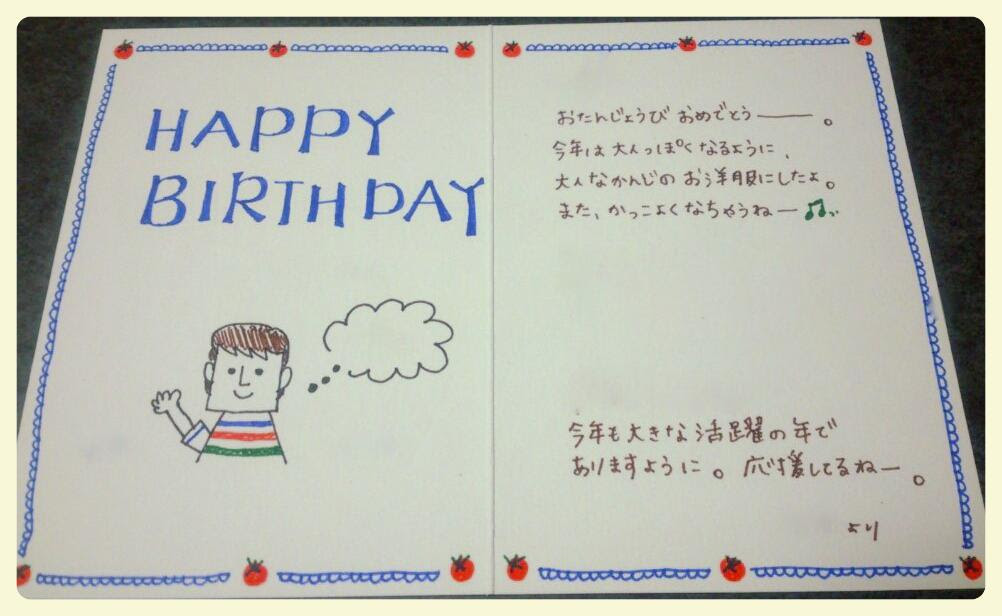 HAPPY
BIRTHDAY
おたんじょうび おめでとう——。
今年は 大人っぽく なるように、
大人なかんじの お洋服にしたよ。
また、かっこよくなちゃうねー
今年も 大きな 活躍の 年で
ありますように。応援してるねー。
より